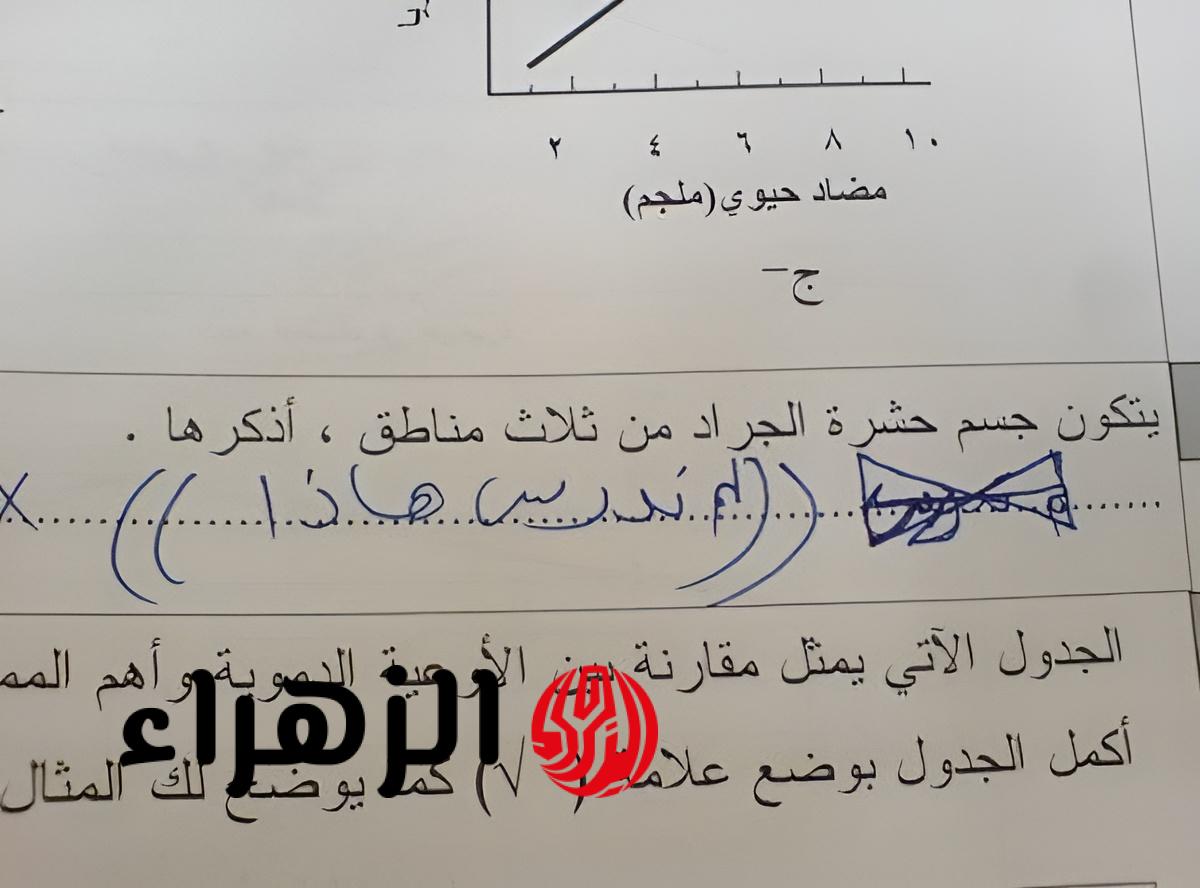 ٢ ٤ ٦ ٨ ١٠
مضاد حيوي (ملجم)
ج-
يتكون جسم حشرة الجراد من ثلاث مناطق ، أذكرها .
((لم ندرس هاذا))
الجدول الآتي يمثل مقارنة بين الأوعية الدموية وأهم
أكمل الجدول بوضع علامة ( √ ) كما يوضع لك المثال
الزهراء